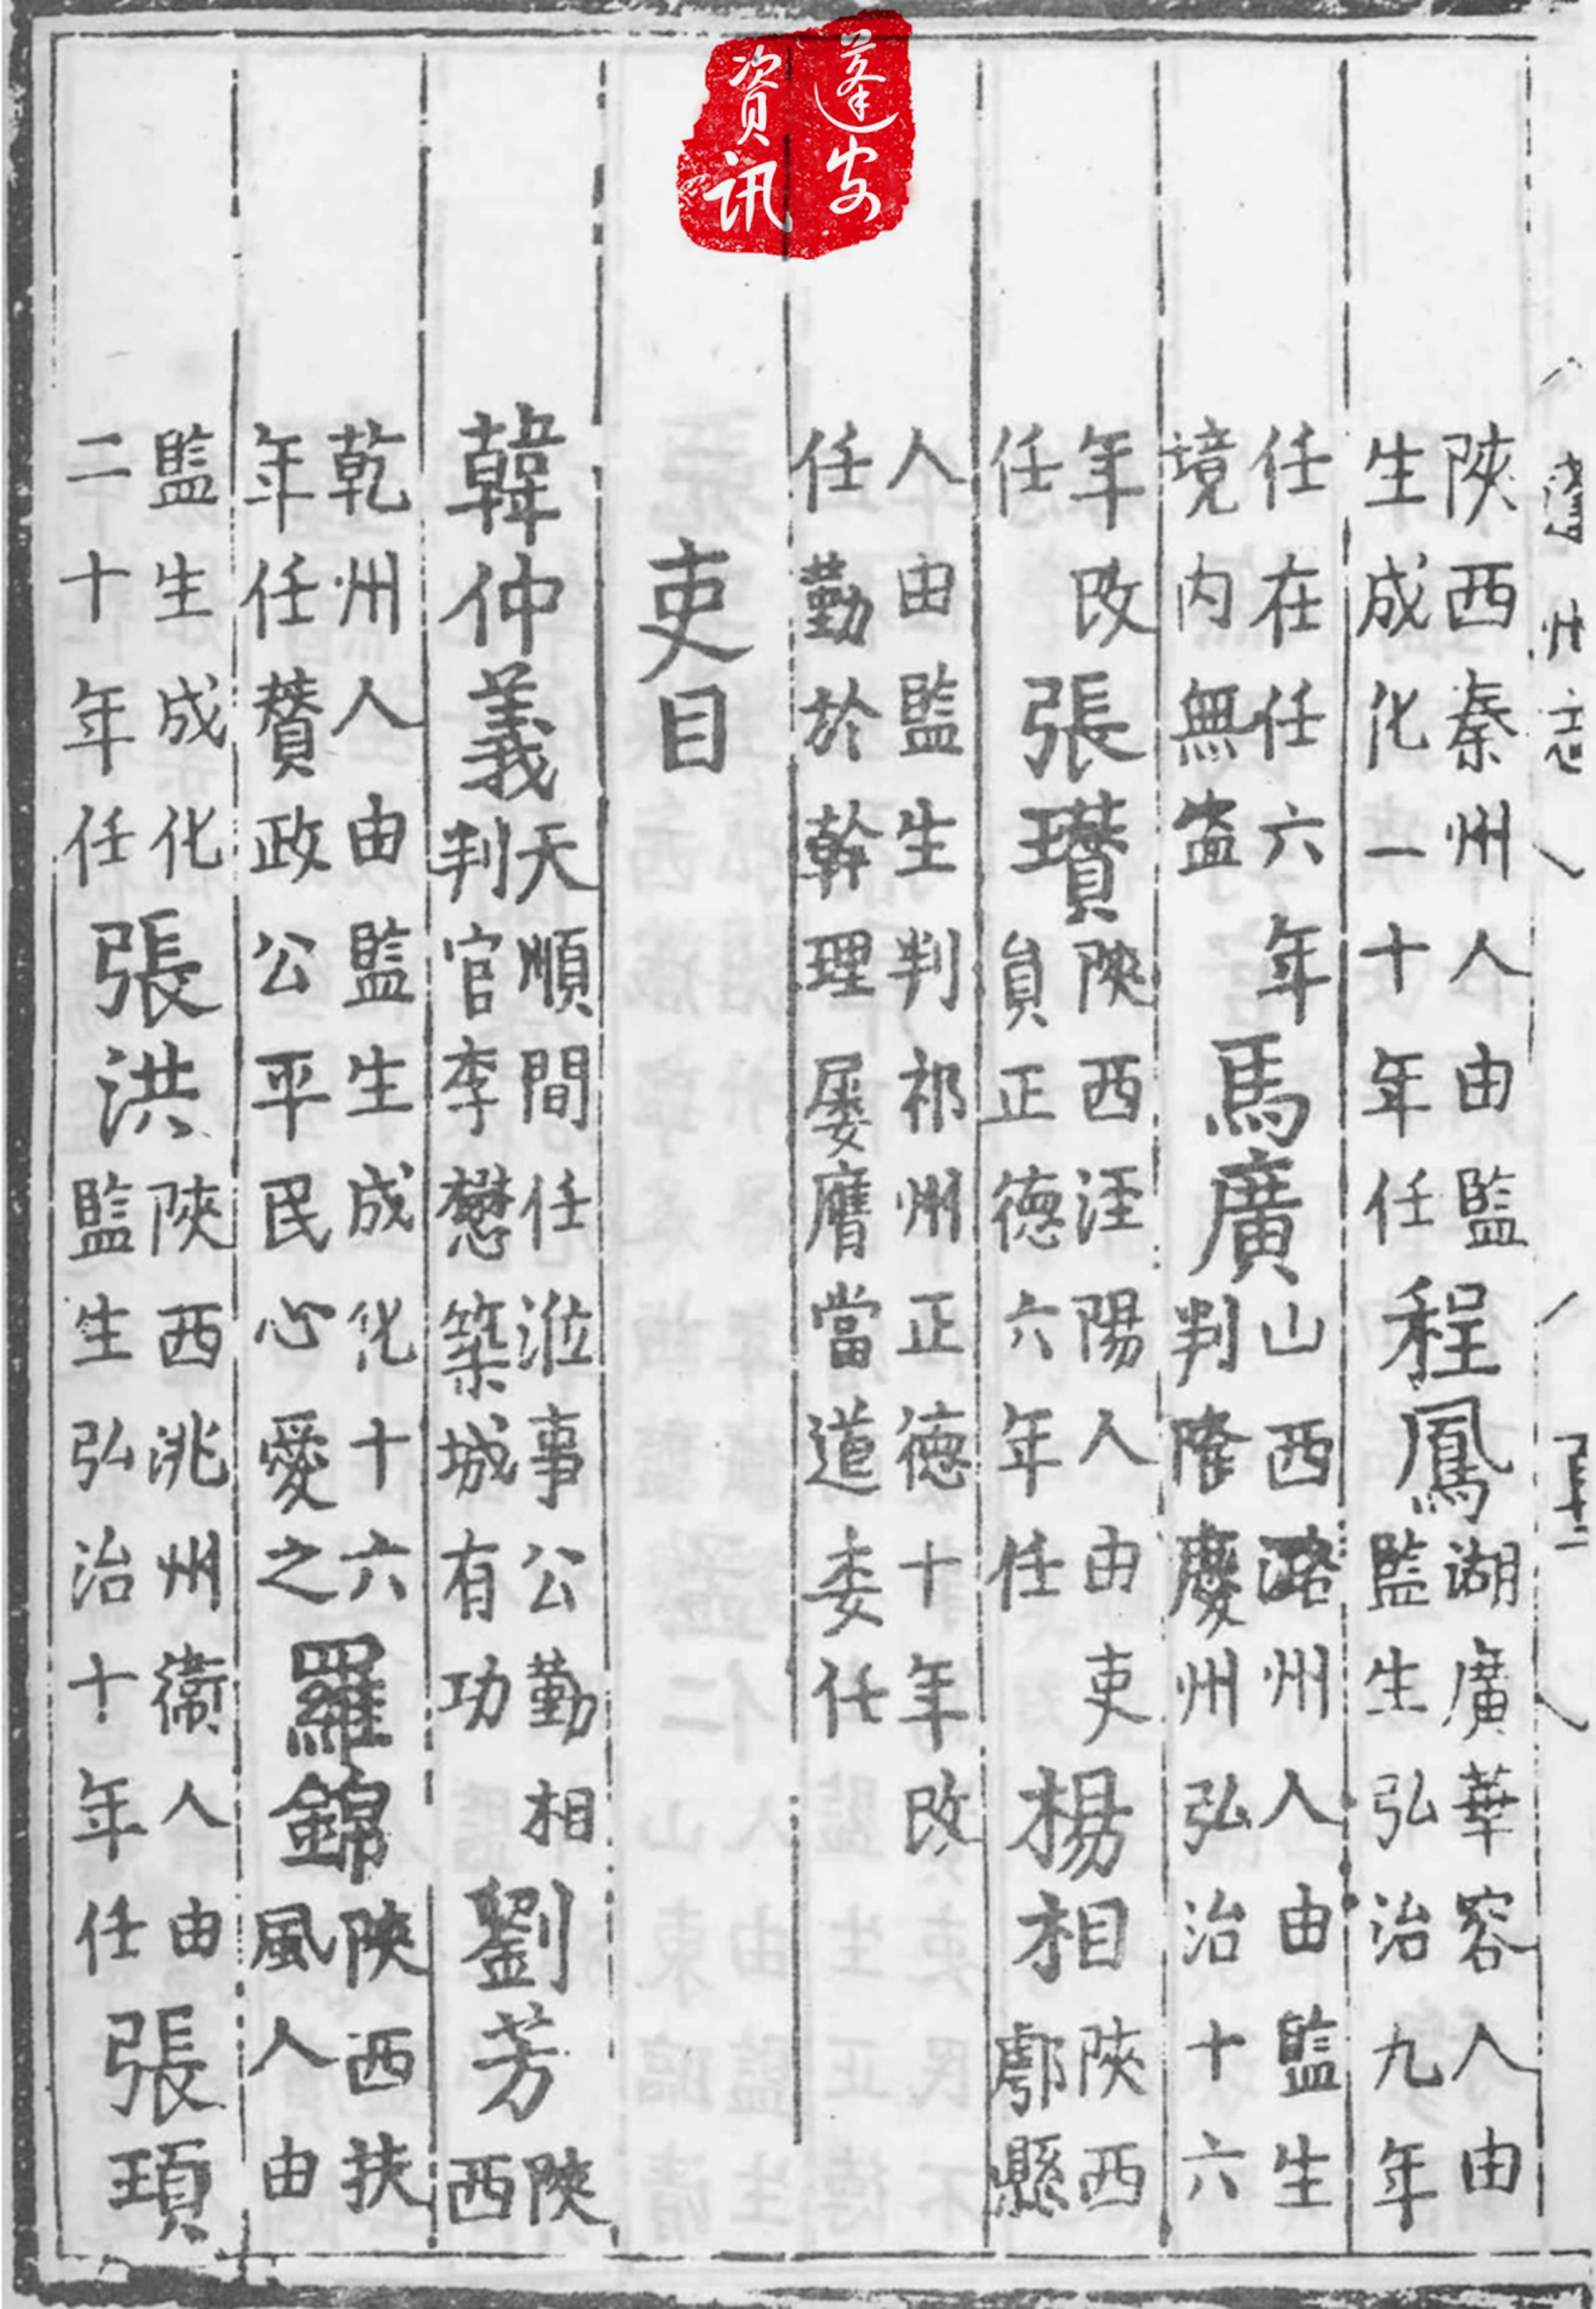 蓬安
資訊
蓬州志
陝西秦州人由監生成化一十年任程鳳湖廣華容人由監生弘治九年
任在任六年境内無盗馬廣山西潞州人由監生判隆慶州弘治十六
年改任張瓚陝西涇陽人由吏員正德六年任楊相陝西鄠縣
人由監生判祁州正德十年改任勤於幹理屢膺當道委任
吏目
韓仲義天順間任涖事公勤相判官李懋築城有功劉芳陝西
乾州人由監生成化十六年任賛政公平民心愛之羅錦陝西扶風人由
監生成化二十年任張洪陝西洮州衞人由監生弘治十年任張頊